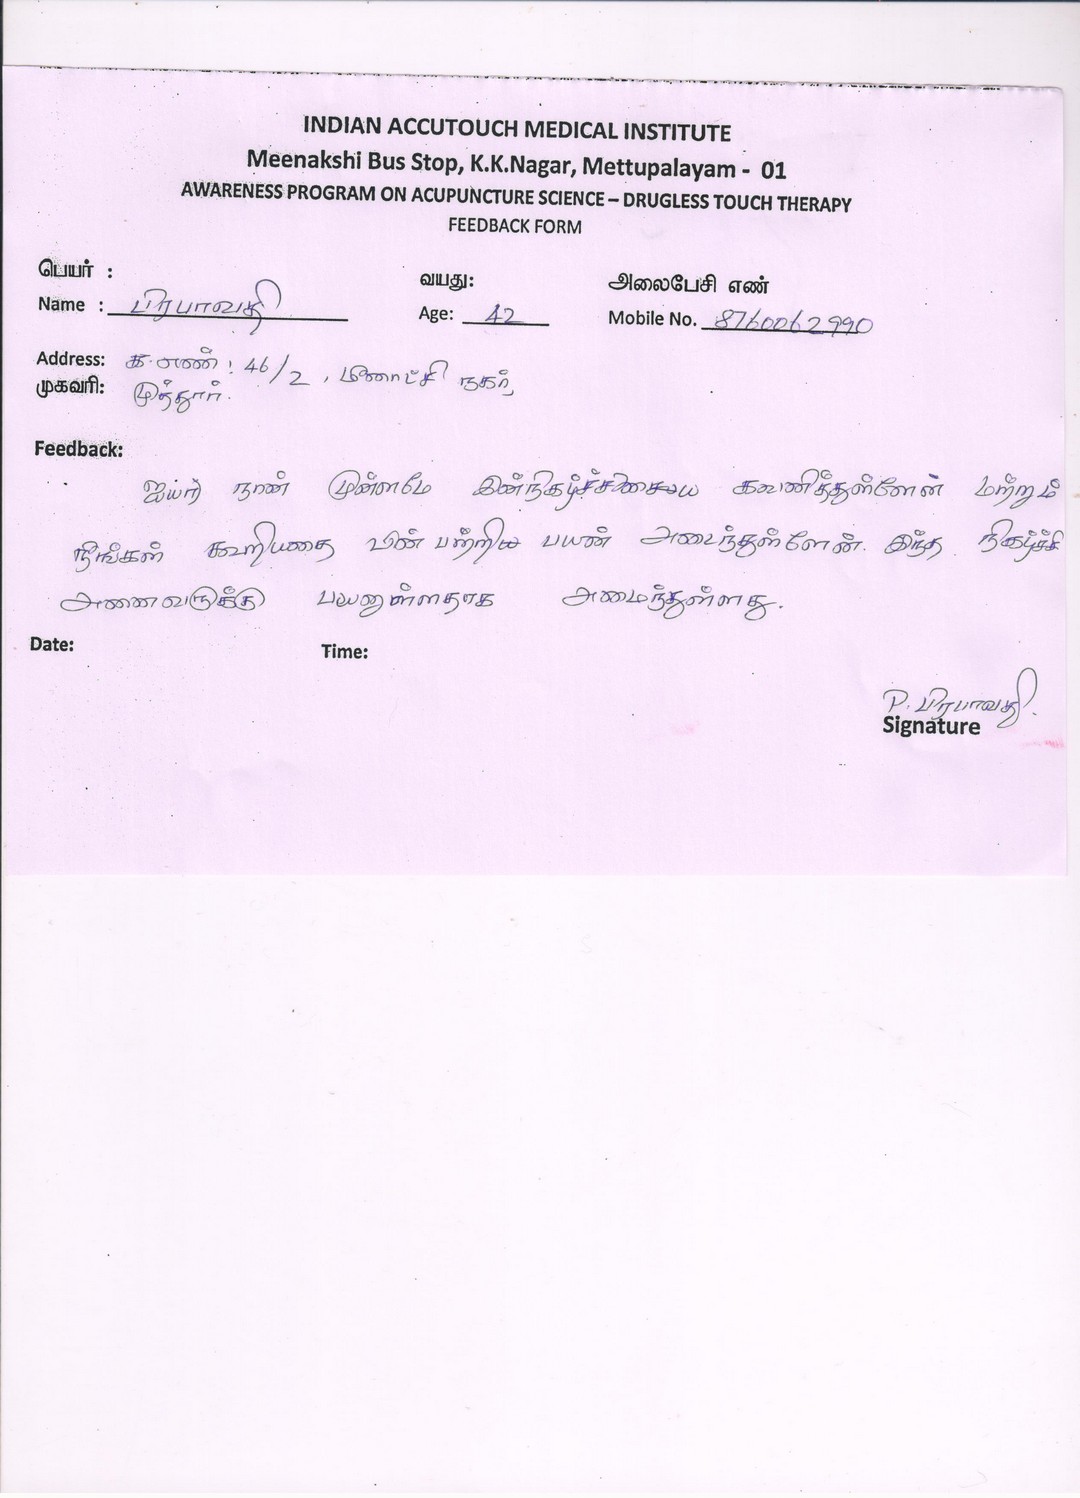 INDIAN ACCUTOUCH MEDICAL INSTITUTE
Meenakshi Bus Stop, K.K.Nagar, Mettupalayam - 01
AWARENESS PROGRAM ON ACUPUNCTURE SCIENCE – DRUGLESS TOUCH THERAPY
FEEDBACK FORM
பெயர் : வயது: அலைபேசி எண்
Name : பிரபாவதி Age: 42 Mobile No. 8760062990
Address: க.எண்: 46/2, மீனாட்சி நகர்,
முகவரி: முத்தூர்.
Feedback:
ஐயா நான் முன்னமே இன்நிகழ்ச்சியை கவனித்துள்ளேன் மற்றும்
நீங்கள் கூறியதை பின் பற்றிய பயண் அடைந்துள்ளேன். இந்த நிகழ்ச்சி
அணைவருக்கு பயனுள்ளதாக அமைந்துள்ளது.
Date: Time:
P. பிரபாவதி.
Signature